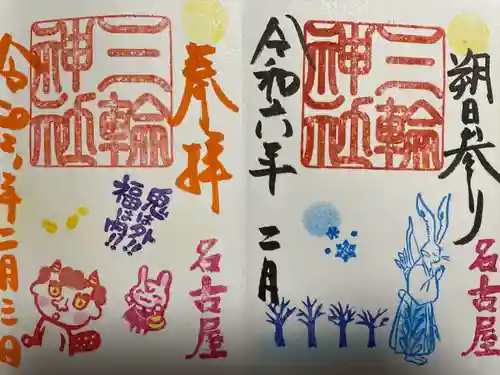 朔日参り
三輪神社
令和六年 二月
名古屋
奉拝
三輪神社
令和六年二月三日
鬼は外!!
福は内!!
名古屋